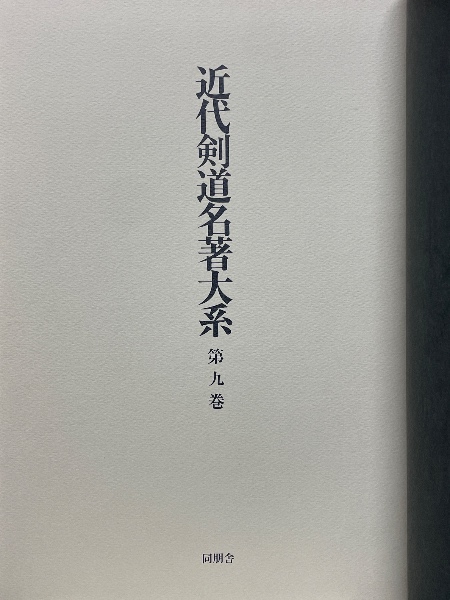 近代剣道名著大系
第九巻
同朋舎